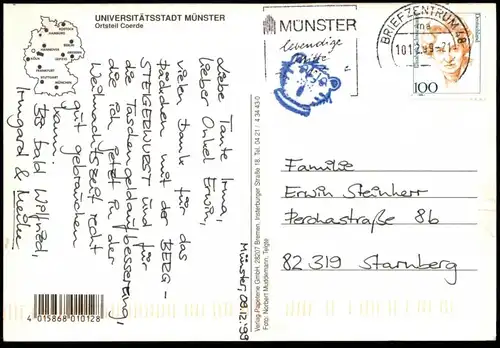 UNIVERSITÄTSSTADT MÜNSTER
Ortsteil Coerde
Liebe Tante Irma,
lieber Onkel Erwin,
vielen Dank für das
Päckchen mit der BERG-
STEIGERWURST und für
die Taschengeldaufbesserung,
die ich jetzt in der
Weihnachtszeit recht
gut gebrauchen
kann.
Bis bald Wilfried,
Irmgard &
Münster, 09.12.'99
4 015868 010128
Verlag-Papeterie GmbH, 28207 Bremen, Insterburger Straße 18, Tel. 04 21 / 4 34 43-0
Foto: Norbert Muddemann, Telgte
MÜNSTER
lebendige
BRIEFZENTRUM 48
10.12.99-21
Deutschland
100
Familie
Erwin Steinherr
Perchastraße 8b
82 319 Starnberg